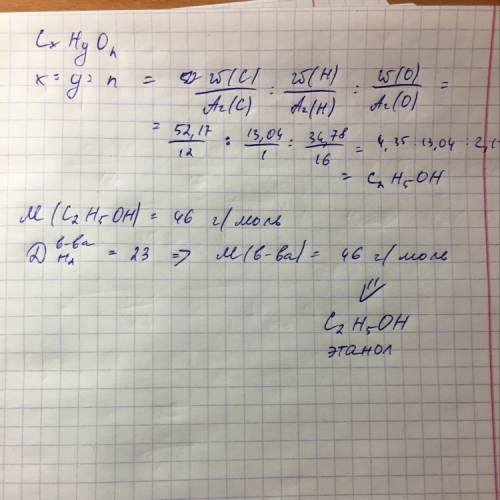 CxHyOn
x = y = n = w(C)/Ar(C) : w(H)/Ar(H) : w(O)/Ar(O) =
= 52,17/12 : 13,04/1 : 34,78/16 = 4,35 : 13,04 : 2,1
= C2H5OH
M(C2H5OH) = 46 г/моль
D в-ва H2 = 23 => M(в-ва) = 46 г/моль
C2H5OH
этанол